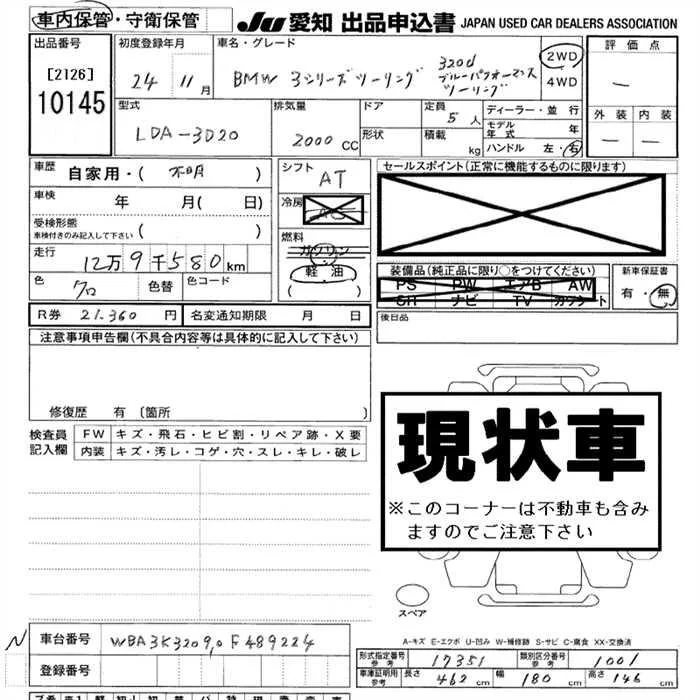 車内保管・守衛保管 JU 愛知 出品申込書 JAPAN USED CAR DEALERS ASSOCIATION
出品番号
[2126]
10145
初度登録年月
24 11月
車名・グレード
BMW 3シリーズツーリング
320d
ブルーパフォーマンス
ツーリング
2WD
4WD
評価点
—
外装 内装
— —
型式
LDA-3D20
排気量
2000 CC
ドア
形状
定員
5人
積載
kg
ディーラー・並行
モデル年式 年
ハンドル 左・右
車歴 自家用・( 不明 )
車検 年 月( 日)
受検形態
車検付きのみ記入して下さい ( )
走行 12万9千580km
色 クロ 色替 色コード
シフト
AT
冷房
AC
燃料
ガソリン
軽油
( )
セールスポイント(正常に機能するものに限ります)
装備品(純正品に限り○をつけてください)
PS PW エアB AW
SH ナビ TV カワシート
新車保証書
有・無
R券 21,360円 名変通知期限 月 日
後日品
注意事項申告欄(不具合内容等は具体的に記入して下さい)
修復歴 有〔箇所 〕
検査員記入欄
FW キズ・飛石・ヒビ割・リペア跡・X要
内装 キズ・汚レ・コゲ・穴・スレ・キレ・破レ
現状車
※このコーナーは不動車も含み
ますのでご注意下さい
スペア
A-キズ E-エクボ U-凹み W-補修跡 S-サビ C-腐食 XX-交換済
N 車台番号 WBA3K32090F489224
登録番号
形式指定番号 参考 17351 類別区分番号 参考 1001
車庫証明用 参考 長さ 462 cm 幅 180 cm 高さ 146 cm